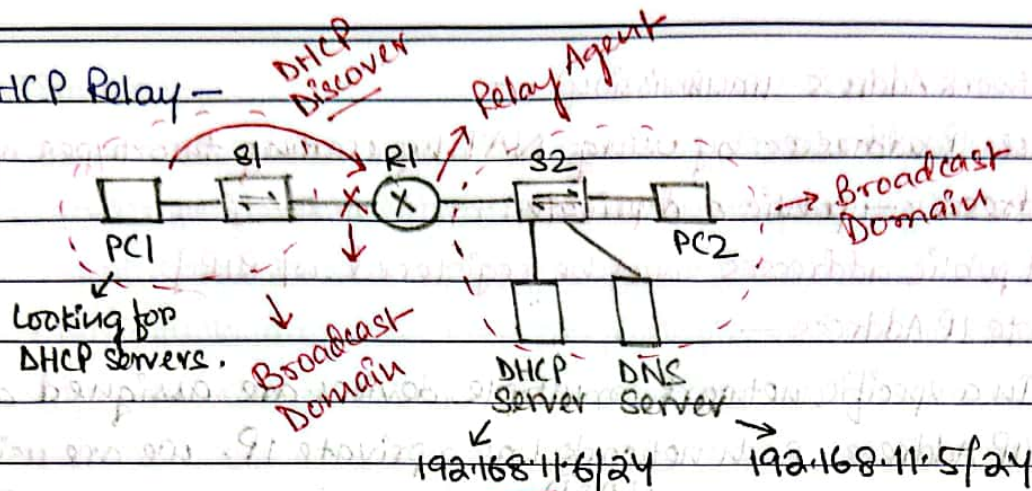 HCP Relay -
DHCP
Discover
Relay Agent
S1
R1
S2
PC1
PC2
→ Broadcast
Domain
Looking for
DHCP servers.
Broadcast
Domain
DHCP
Server
DNS
Server
192.168.11.6/24
192.168.11.5/24